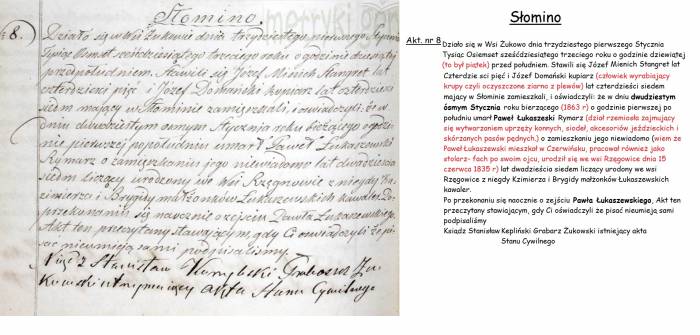 Słomino.
№ 8.
Działo się w Wsi Żukowie dnia trzydziestego pierwszego Stycznia
Tysiąc Osiemset sześćdziesiątego trzeciego roku o godzinie dziewiątej
przedpołudniem. Stawili się Jozef Mienich Stangret lat
czterdzieści pięć i Jozef Domanski Kupiarz lat czterdzieści
siedm mający w Słominie zamięszkali, i oświadczyli: że w
dniu dwudziestym osmym Stycznia roku bieżącego ogodzi-
nie pierwszej popołudniu umarł Paweł Łukaszewski
Rymarz o zamięszkaniu jego niewiadomo lat dwadzieścia
siedm liczący urodzony we Wsi Rzęgnowie z niegdy Ka-
zimierza i Brygidy małżonków Łukaszewskich kawaler. Po
przekonaniu się naocznie o zejściu Pawła Łukaszewskiego,
Akt ten przeczytany stawającym, gdy Ci oświadczyli że pi-
sać nieumieją sami podpisaliśmy.
Ksiądz Stanisław Grabosz Żu-
kowski utrzymujący akta Stanu Cywilnego
metryki
Słomino
Akt. nr 8
Działo się w Wsi Żukowo dnia trzydziestego pierwszego Stycznia
Tysiąc Osiemset sześćdziesiątego trzeciego roku o godzinie dziewiątej
(to był piątek) przed południem. Stawili się Józef Mienich Stangret lat
Czterdzie sci pięć i Józef Domański kupiarz (człowiek wyrabiający
krupy czyli oczyszczone ziarno z plewów) lat czterdzieści siedem
mający w Słominie zamieszkali, i oświadczyli: ze w dniu dwudziestym
ósmym Stycznia roku bierzącego (1863 r) o godzinie pierwszej po
południu umarł Paweł Łukaszeski Rymarz (dział rzemiosła zajmujący
się wytwarzaniem uprzęży konnych, siodeł, akcesoriów jeździeckich i
skórzanych pasów pędnych,) o zamieszkaniu jego niewiadomo (wiem że
Paweł Łukaszewski mieszkał w Czerwińsku, pracował również jako
stolarz- fach po swoim ojcu, urodził się we wsi Rzęgowice dnia 15
czerwca 1835 r) lat dwadzieścia siedem liczący urodony we wsi
Rzęgowice z niegdy Kzimierza i Brygidy małżonków Łukaszewskich
kawaler.
Po przekonaniu się naocznie o zejściu Pawła Łukaszewskiego, Akt ten
przeczytany stawiającym, gdy Ci oświadczyli że pisać nieumieją sami
podpisaliśmy
Ksiądz Stanisław Kepliński Grabarz Żukowski istniejący akta
Stanu Cywilnego